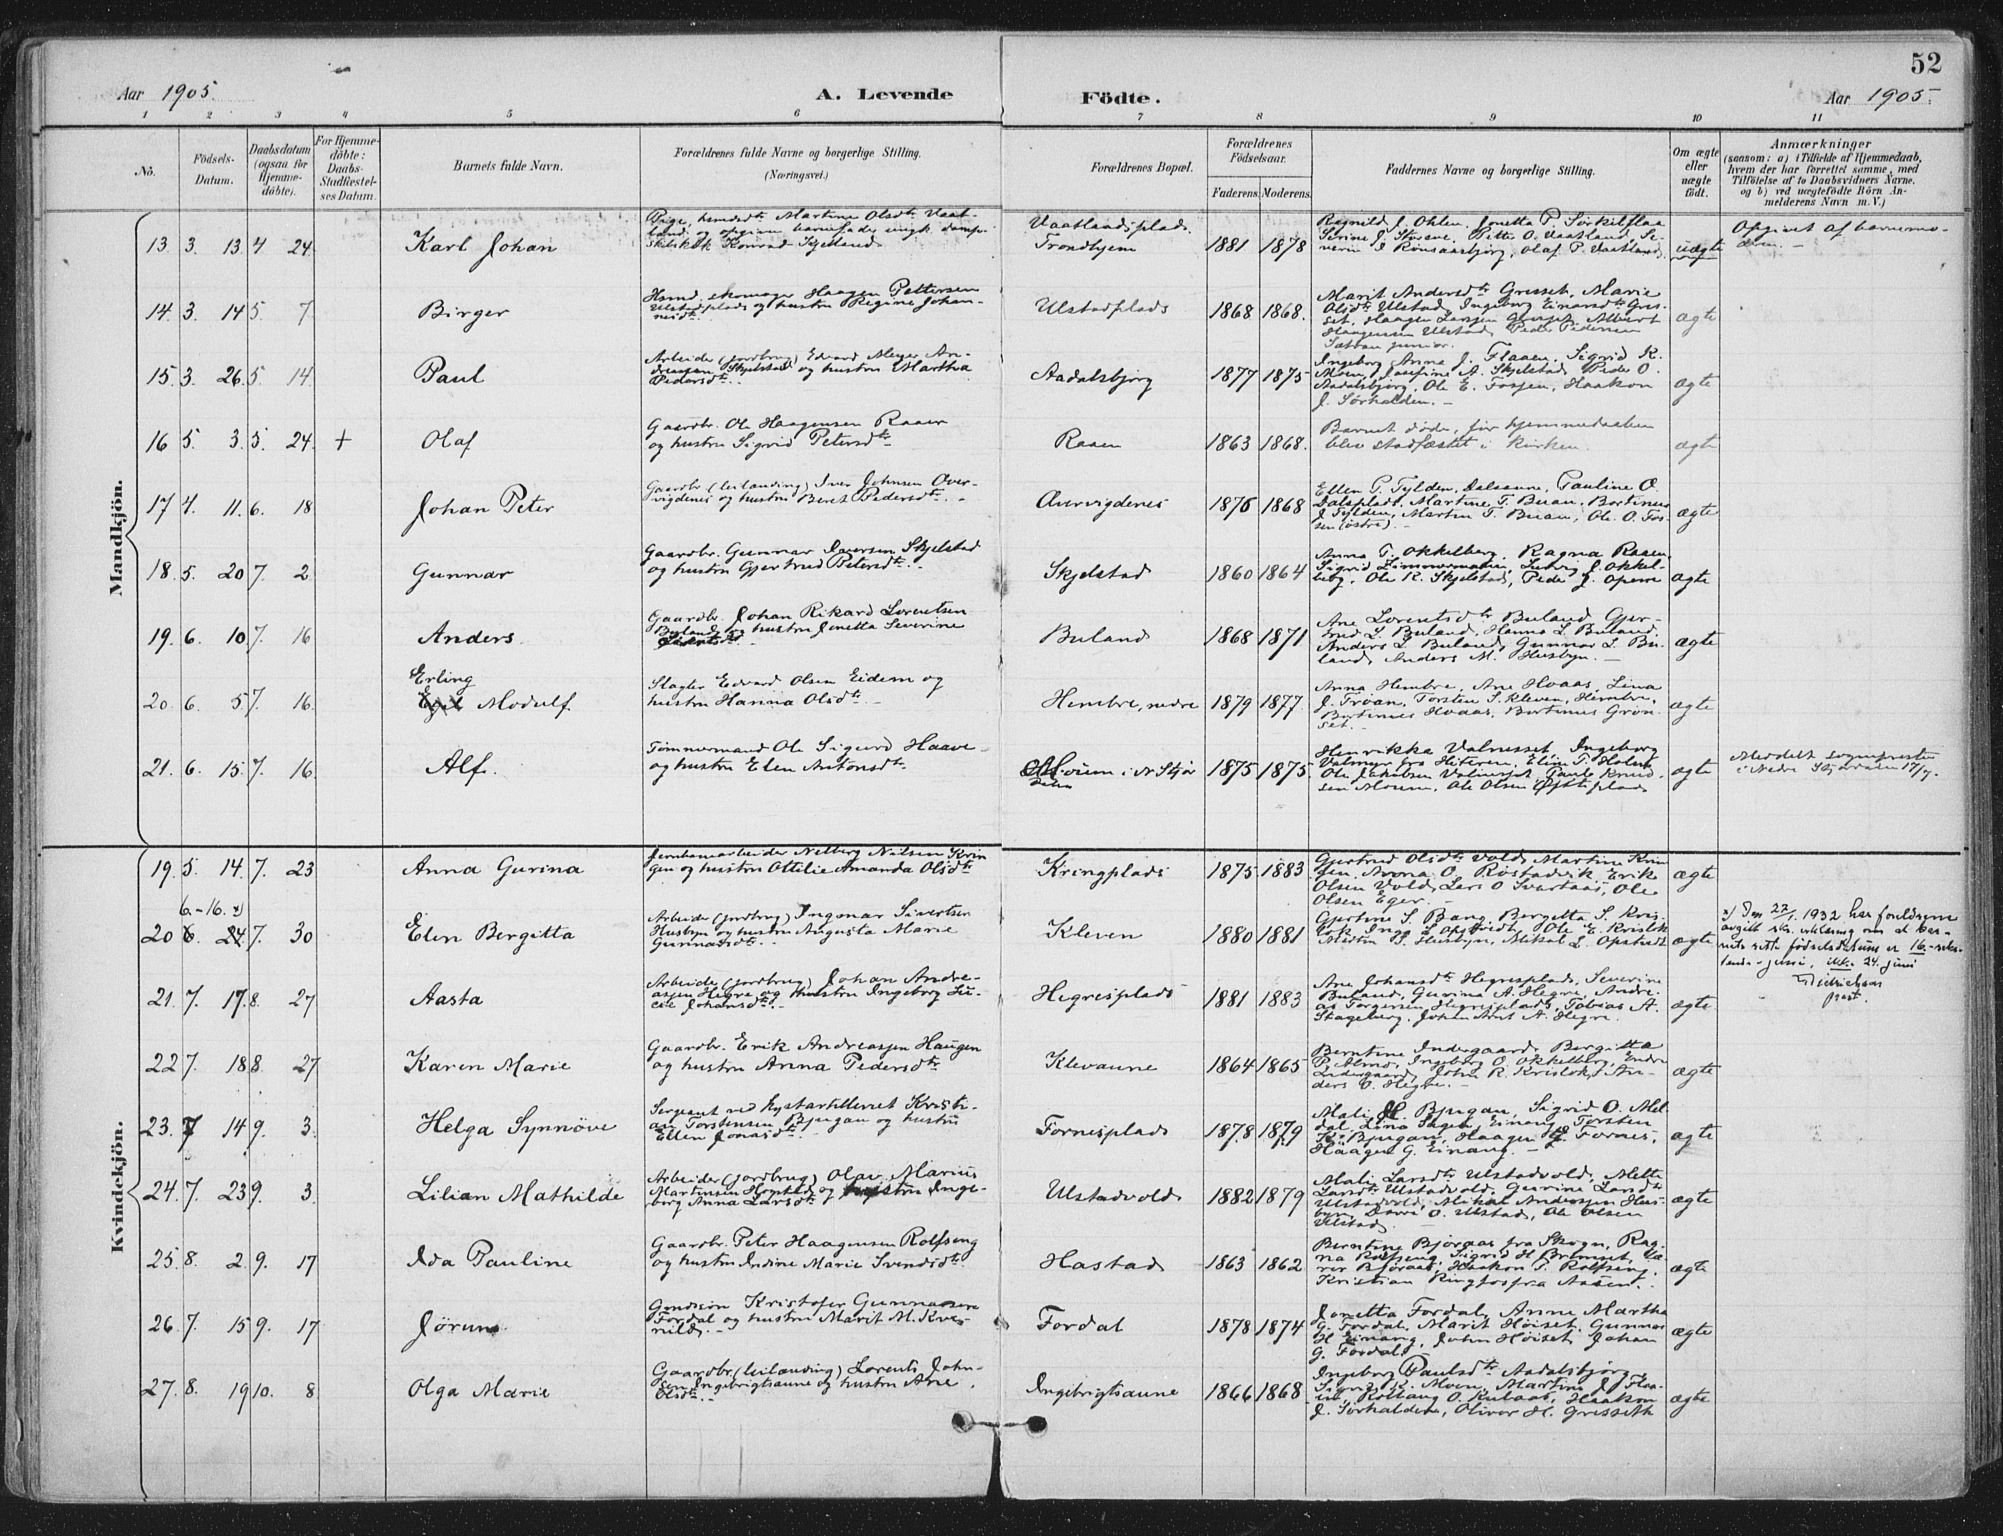 52
Aar 1905. A. Levende Födte. Aar 1905.
1 2 3 4 5 6 7 8 9 10 11
No. Födsels-Datum. Daabsdatum (ogsaa for Hjemme-döbte). For Hjemme-döbte: Daabs-Stadfæstel-ses Datum. Barnets fulde Navn. Forældrenes fulde Navne og borgerlige Stilling. (Næringsvei.) Forældrenes Bopæl. Forældrenes Födselsaar. Faderens. Moderens. Faddernes Navne og borgerlige Stilling. Om ægte eller uægte födt. Anmærkninger (saasom: a) i Tilfælde af Hjemmedaab, hvem der har forrettet samme, med Tilföielse af to Daabsvidners Navne, og b) ved uægtefödte Börn An-melderens Navn m. V.)
Mandkjön.
13. 3. 13. 4 24. Karl Johan
Pige, Martine Olsdtr Vaat-
land, og opgiven barnefader ungk. damp-
Konrad Kjelland
Vaatlandsplads.
Trondhjem 1881 1878
Ragnild J. Ohlen, Jonetta P.
Petter O. Vaatland, Se-
Olaf P. Vaatland. uægte
Opgivet af barnemo-
deren. -
14. 3. 14 5 7. Birger
Haagen Pettersen
Ulstadplads og hustru Regine Johan-
nesdtr
Ulstadplads 1868 1868.
Marit Andersdtr Grisset, Marie
Olsdtr Ulstad, Ingeborg Einarsdtr Gris-
set, Haagen Larssen Grisset, Albert
Haagensen Ulstad, Peder Pedersen
junior. ægte
15. 3. 26. 5 14. Paul
Arbeider (jordbrug) Edvard Meyer An-
dreassen Skjelstad og hustru Martha
Pedersdtr.
Aadalsbjørg 1877 1875
Ingeborg Anna J. Flaaen, Sigrid K.
Moen, Josefine A. Skjelstad, Peder O.
Aadalsbjørg, Ole E. Fossen, Haakon
J. Sørhalden. - ægte
16 5. 3. 5. 24. + Olaf
Gaardbr. Ole Haagensen Raaen
og hustru Sigrid Petersdtr
Raaen 1863 1868.
Barnet døde, før hjemmedaaben
blev stadfæstet i kirken. ægte
17 4. 11. 6. 18 Johan Peter
Gaardbr (leilænding) Iver Johnsen Over-
vigdenes og hustru Beret Pedersdtr.
Overvigdenes 1876 1868
Ellen P. Fylden, Dalsaune, Pauline O.
Dalsplads, Martine T. Buan, Bertinus
J. Fylden, Martin T. Buan, Ole O. Fos-
sen (østre). - ægte
18. 5. 20 7. 2 Gunnar
Gaardbr. Gunnar Iversen Skjelstad
og hustru Gjertrud Petersdtr.
Skjelstad 1860 1864
Anna P. Okkelberg, Ragna Raaen,
Sigrid Zimmermann, Ludvig J. Okkel-
berg, Ole R. Skjelstad, Peder J. Opem ægte
19. 6. 10 7. 16 Anders
Gaardbr Johan Rikard Lorentsen
Buland og hustru Jonetta Severine
Buland 1868 1871
Ane Lorentsdtr Buland, Gjer-
trud L. Buland, Hanna L. Buland,
Anders L. Buland, Gunnar L. Bu-
land, Anders M. Husbyn. - ægte
20. 6. 5 7. 16. Erling
Egil Modulf.
Slagter Edvard Olsen Eidem og
hustru Hanna Olsdtr.
Hembre, nedre 1879 1877.
Anna Hembre, Ane Hovaas, Lina
J. Troan, Torsten S. Kleven, Hembre,
Bertinus Hovaas, Bertinus Grøn-
set. ægte
21. 6. 15. 7. 16 Alf.
Tømmermand Ole Sigurd Haave-
og hustru Elen Antonsdtr
Moum i N Stjør
dalen 1875 1875.
Henrikka Valnesset, Ingeborg
fra Hiteren, Elise T. Holan,
Ole Jakobsen Paul Knud-
sen Moum, Ole Olsen ægte
Meddelt sognepresten
i Nedre Stjørdalen 17/7.
Kvindekjön.
19. 5. 14. 7. 23 Anna Gurina
Jernbanearbeider Nelberg Nilsen Krin
gen og hustru Ottilie Amanda Olsdtr
Kringplads 1875 1883
Gjertrud Olsdtr Vold, Martine Krin
gen, Anna O. Røstadvik, Erik
Olsen Vold, Lars O Svartaas, Ole
Olsen Eger. - ægte
6.-16. x)
20 6. 24. 7. 30 Elen Bergitta
Arbeider (jordbrug) Ingmar Sivertsen
Husbyn og hustru Augusta Marie
Gunnarsdtr.
Kleven 1880 1881
Gjertine S. Bang, Bergitta S. Kris-
lok, Inga L. Opstedt, Ole E. Krislok
Morten S. Husbyn, Mikal L. Opstedt ægte
x) Den 22/1. 1932 har foreldrene
avgitt skr. erklæring om at bar-
nets rette fødselsdatum er 16.-seks-
tende-juni, ikke 24. juni
Didrichsen
prest.
21. 7. 17. 8. 27 Aasta
Arbeider (jordbrug) Johan Andre-
assen Hegre og hustru Ingeborg Lu-
cie Johansdtr. -
Hegresplads 1881 1883
Ane Johansdtr Hegresplads, Severine
Buland, Gurina A. Hegre, Andre-
as Torgersen Hegresplads, Tobias A.
Skageberg, Johan Arnt A. Hegre. ægte
22 7. 18 8. 27 Karen Marie
Gaardbr. Erik Andreassen Haugen
og hustru Anna Pedersdtr
Klevaune 1864 1865
Berntine Indergaard, Bergitta
P. Almo, Ingeborg O. Okkelberg, Endre
Indergaard, John R. Krislok, An-
ders O. Hegre. - ægte
23. 7 14 9. 3. Helga Synnöve
Sergeant ved kystartilleriet Kristi-
an Torstensen Bjugan og hustru
Ellen Jonasdtr.
Fornesplads 1878 1879
Mali H. Bjugan, Sigrid O. Mel-
dal, Lina Einang, Torsten
K. Bjugan, Haagen G. Fornes,
Haagen G. Einang. - ægte
24. 7. 23 9. 3 Lilian Mathilde
Arbeider (jordbrug) Olav Marius
Martinsen Hopstad og hustru Inge-
borg Anna Larsdtr
Ulstadvold 1882 1879
Mali Larsdtr Ulstadvold, Mette
Larsdtr Ulstadvold, Gurine Larsdtr
Ulstadvold, Mikal Anderssen Hus-
byn, O. Ulstad, Ole Olsen
Ulstad ægte
25. 8. 2. 9. 17 Ida Pauline
Gaardbr. Peter Haagensen Rolfseng
og hustru Indine Marie Svendsdtr
Hastad 1863 1862
Berntine Bjøraas fra Skogn, Rag-
na Rolfseng, Sigrid H Bremset,
Bjøraas, Haakon P. Rolfseng,
Kristian Ringfos fra Aasen. ægte
26. 7. 15 9. 17 Jörun
Gmdsön Kristofer Gunnarsen
Fordal og hustru Marit M. Kves-
nild. -
Fordal 1878 1874
Jonetta Fordal, Anne Martha
G. Fordal, Marit Höiset, Gunnar
H Einang, John Höiset, Johan
G. Fordal. ægte
27. 8. 19 10. 8 Olga Marie
Gaardbr (leilænding) Lorents John-
sen Ingebrigtsaune og hustru Ane
Olsdtr. -
Ingebrigtsaune 1866 1868
Ingeborg Paulsdtr Aadalsbjørg,
Sigrid K. Moen, Martine J. Flaa-
en, Rolland O. Kulaas, Haakon
J. Sørhalden, Oliver H. Grisseth ægte